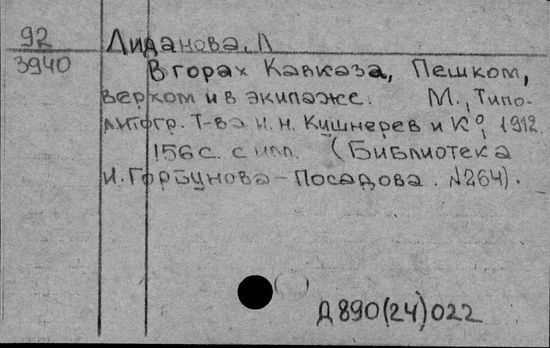 92 Лиданова, Л
3940 В горах Кавказа, Пешком,
верхом и в экипаже. М., Типо-
литогр. Т-ва И. Н. Кушнерев и К°, 1912.
156 с. с илл. (Библиотека
И. Горбунова-Посадова. №264).
Д890(24)022